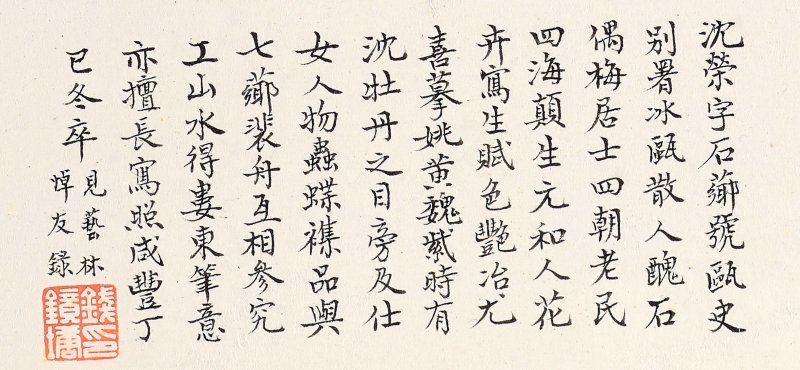 沈榮字石薌號甌史
別署冰甌散人醜石
偶梅居士四朝老民
四海顛生元和人花
卉寫生賦色豔冶尤
喜摹姚黃魏紫時有
沈牡丹之目旁及仕
女人物蟲蝶襍品與
七薌裴舟互相參究
工山水得婁東筆意
亦擅長寫照咸豐丁
巳冬卒
見藝林
悼友錄
錢印
鏡塘